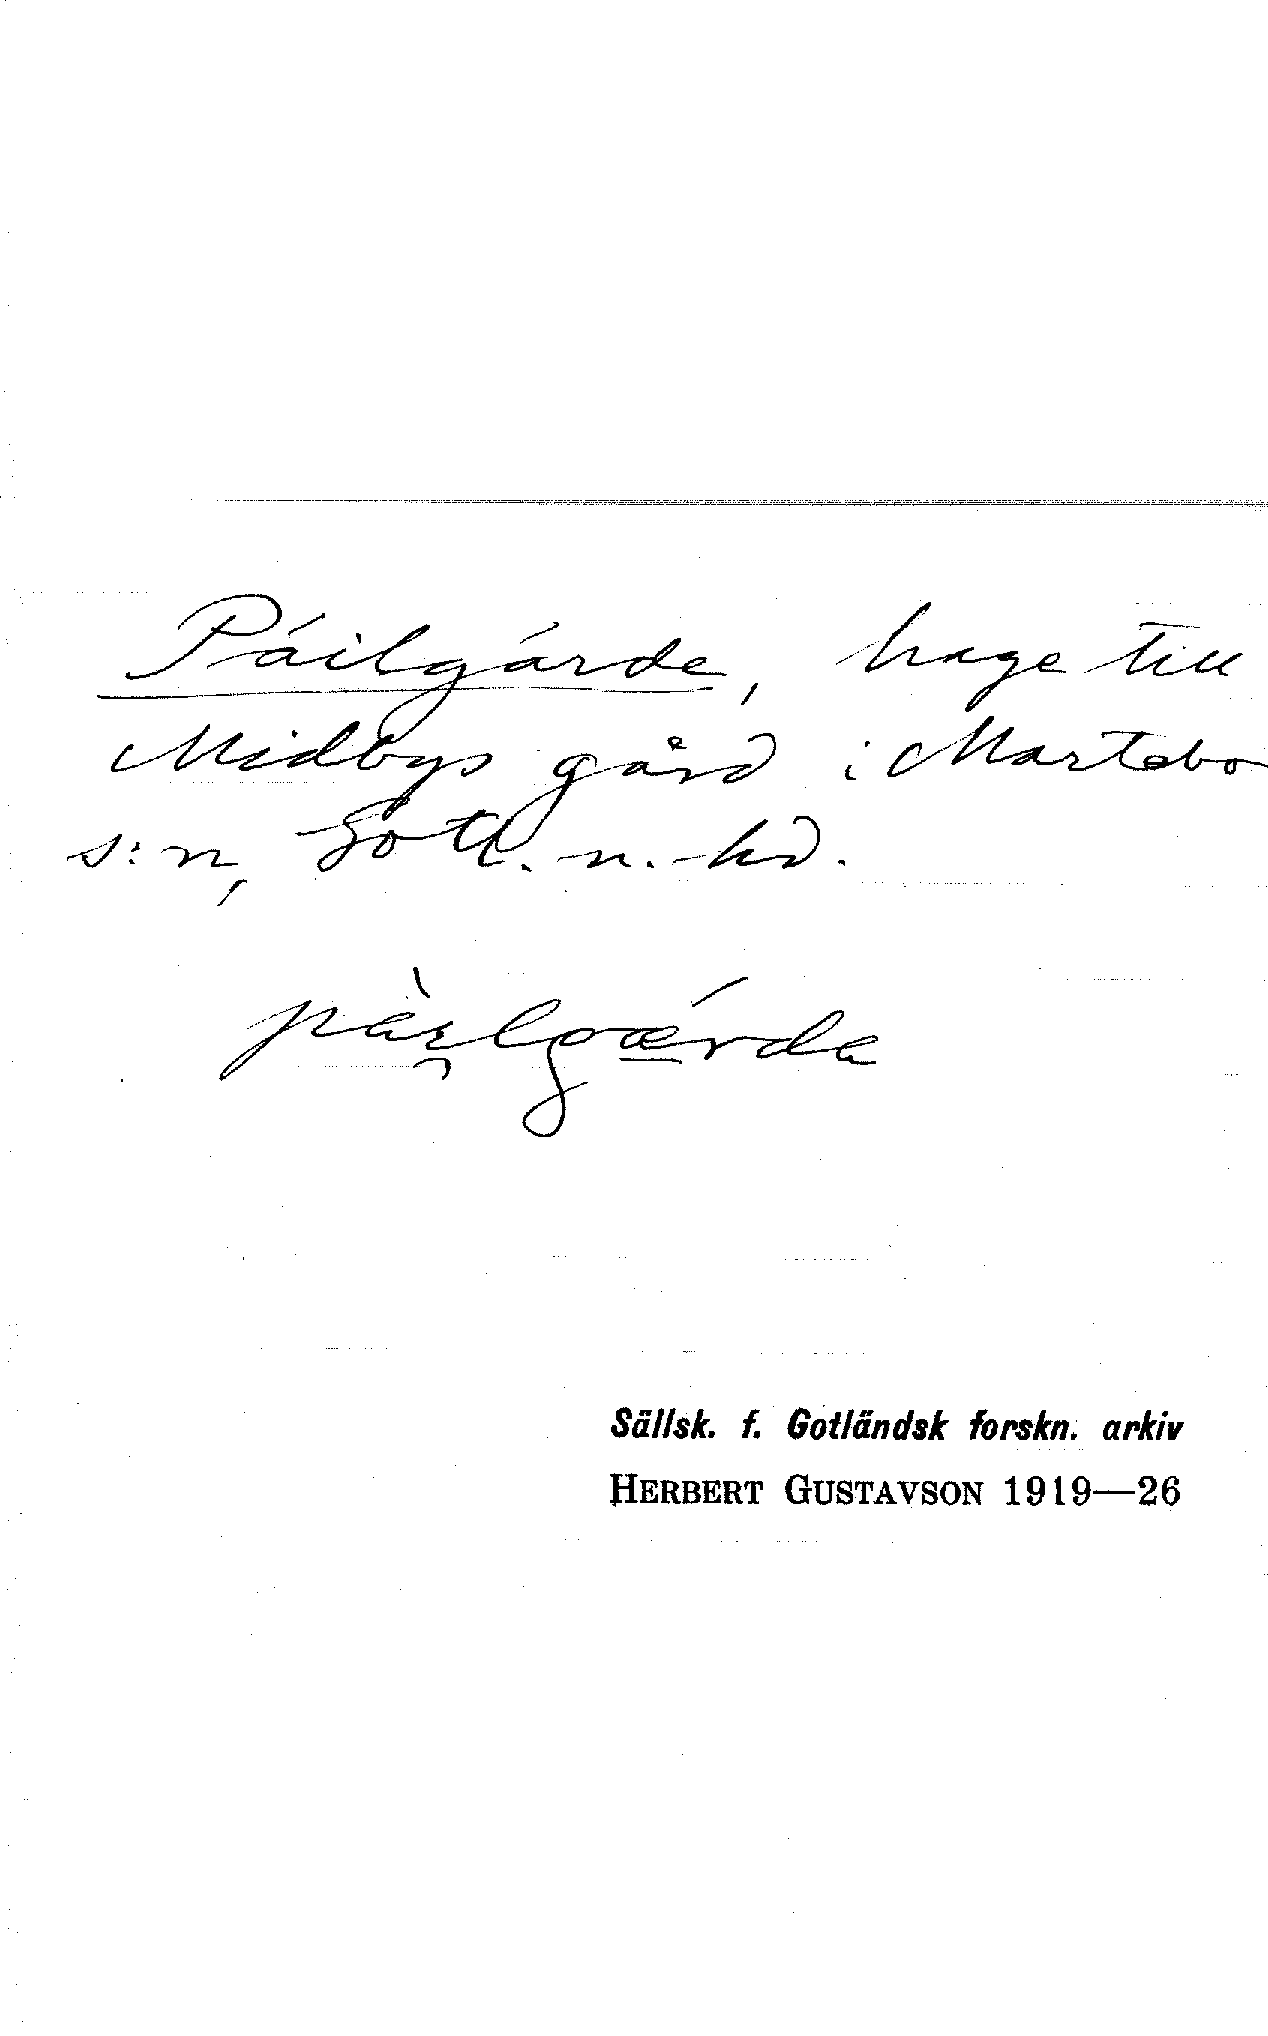 Páilgárde, hage till
Midbys gård i Martebo
s:n, Gotl. n. hd.
pàɪ̯lgǽrda
Sällsk. f. Gotländsk forskn. arkiv
HERBERT GUSTAVSON 1919—26